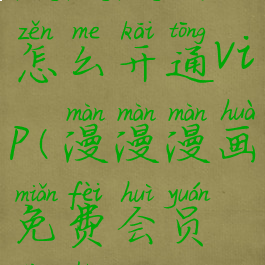 zěn me kāi tōng
怎么开通Vi
màn màn màn huà
P(漫漫漫画
miǎn fèi huì yuán
免费会员